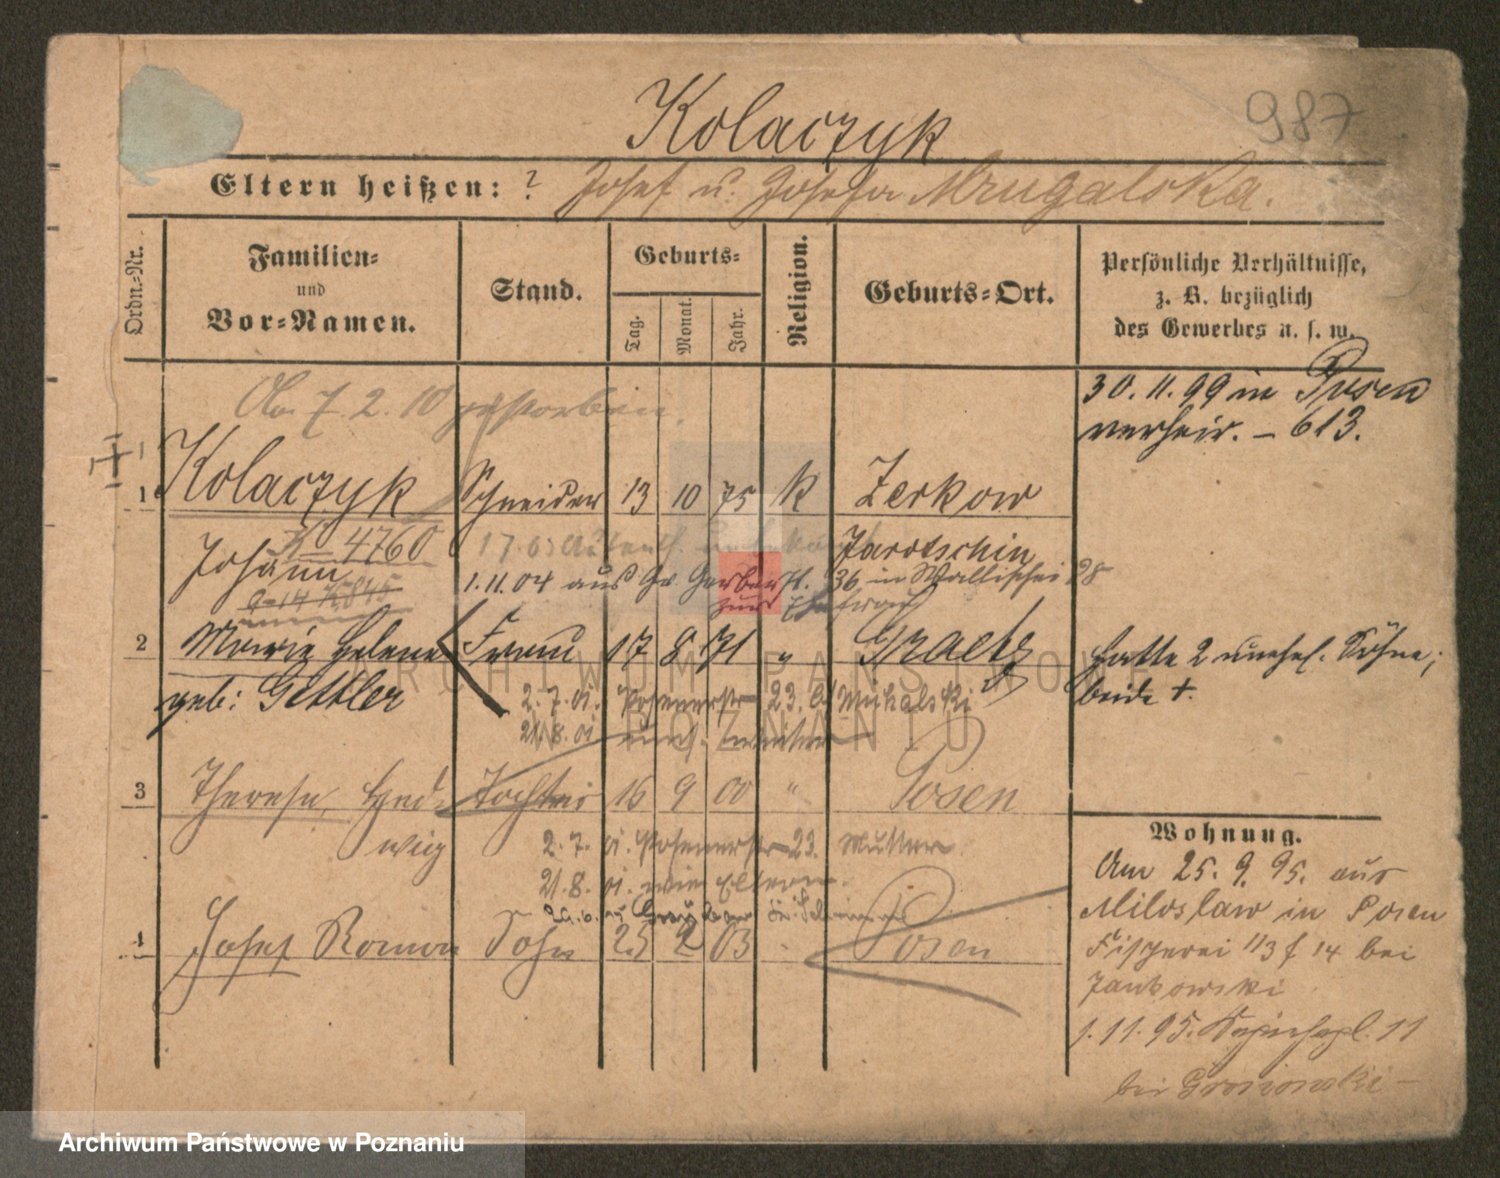 987
Kolaczyk
Eltern heißen: ? Josef u. Josefa Mrugalska.
Ordn.-Nr.
Familien-
und
Vor-Namen.
Stand.
Geburts-
Tag.
Monat.
Jahr.
Religion.
Geburts-Ort.
Persönliche Verhältnisse,
z. B. bezüglich
des Gewerbes u. s. w.
7. 2. 10 gestorben.
30. 11. 99 in Posen
verheir. – 613.
1 Kolaczyk Schneider 13 10 75 K Zerkow
Johann 4760
Jarotschin
1. 11. 04 aus Gr. Gerberst. 36 in Wallischei 28
zur Ehefrau
2 Marie Helene Frau 17 8 71 " Graetz
geb: Gettler
hatte 2 unehel. Söhne;
beide †.
2. 7. 01. Posenerstr 23. b/ Michalski
21. 8. 01
3 Therese, Hed- Tochter 16 9 00 " Posen
wig
2. 7. 01. Posenerstr 23. Mutter
21. 8. 01. wie Eltern.
4 Josef Roman Sohn 25 2 03 Posen
Wohnung.
Am 25. 9. 95. aus
Miloslaw in Posen
Fischerei 113 f 14 bei
Jankowski
1. 11. 95. 11
bei Gronowski –
ARCHIWUM PAŃSTWOWE
W POZNANIU
Archiwum Państwowe w Poznaniu